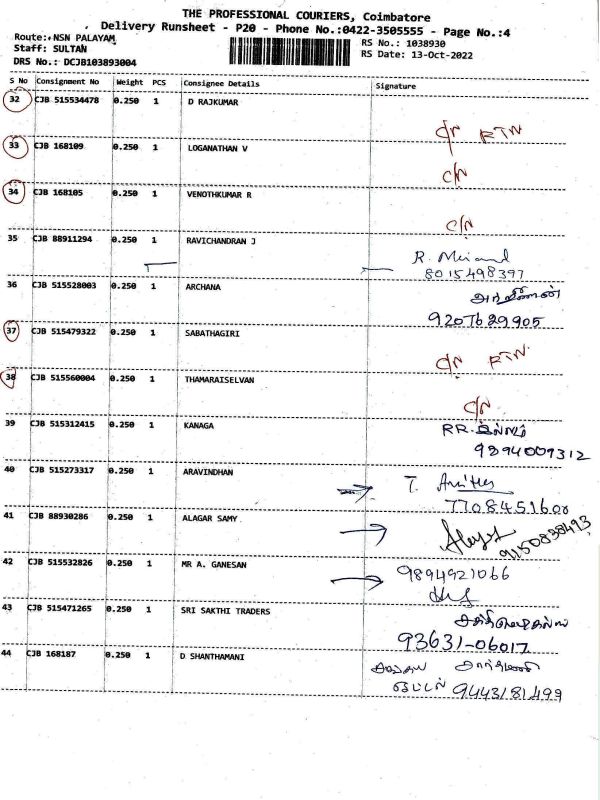 THE PROFESSIONAL COURIERS, Coimbatore
Delivery Runsheet - P20 - Phone No.:0422-3505555 - Page No.:4
Route: NSN PALAYAM
RS No.: 1038930
Staff: SULTAN
RS Date: 13-Oct-2022
DRS No.: DCJB103893004
S No Consignment No Weight PCS Consignee Details Signature
32 CJB 515534478 0.250 1 D RAJKUMAR
C/N RTN
33 CJB 168109 0.250 1 LOGANATHAN V
C/N
34 CJB 168105 0.250 1 VENOTHKUMAR R
C/N
35 CJB 88911294 0.250 1 RAVICHANDRAN J
R.
8015498397
36 CJB 515528003 0.250 1 ARCHANA
9207629905
37 CJB 515479322 0.250 1 SABATHAGIRI
C/N RTN
38 CJB 515560004 0.250 1 THAMARAISELVAN
C/N
39 CJB 515312415 0.250 1 KANAGA
RR.
9894009312
40 CJB 515273317 0.250 1 ARAVINDHAN
T.
7708451600
41 CJB 88930286 0.250 1 ALAGAR SAMY
9150838493
42 CJB 515532826 0.250 1 MR A. GANESAN
9894921066
43 CJB 515471265 0.250 1 SRI SAKTHI TRADERS
93631-06017
44 CJB 168187 0.250 1 D SHANTHAMANI
9443181499